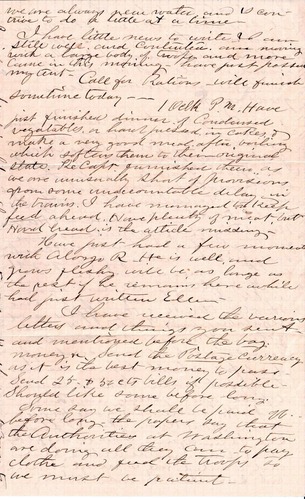 we are always near water and I con-
trive to do a little at a time
I have little news to write I am
quite well, and Continue am messing
with a large body of troops and more
came in this morning have just passed
my tent - Call for Rations will finish
sometime today -
1 Oclk P.M. Have
just finished dinner of Condensed
vegetables, a hard pressed in cakes, &
make a very good meal after boiling
which softens them to their original
state. The Govt furnished them as
we are unusually short of provisions
from some unaccountable delay in
the trains. I have managed to keep
feed ahead. Have plenty of meat, but
Hard bread is the article needing
Have just had a few moments
with Alonzo R. He is well, and
grows fleshy will be as long as
the rest if he remains here awhile
had just written Ellen
I have received the various
letters and things you sent
and mentioned before the bag
money &c. Send the Postage Currency
as it is the best money to pass
Send 25 & 50 cts bills if possible
Should like some before long.
Some say we shall be paid off
before long, the papers say that
the Authorities at Washington
are doing all they can to pay
clothe and feed the troops so
we must be patient.